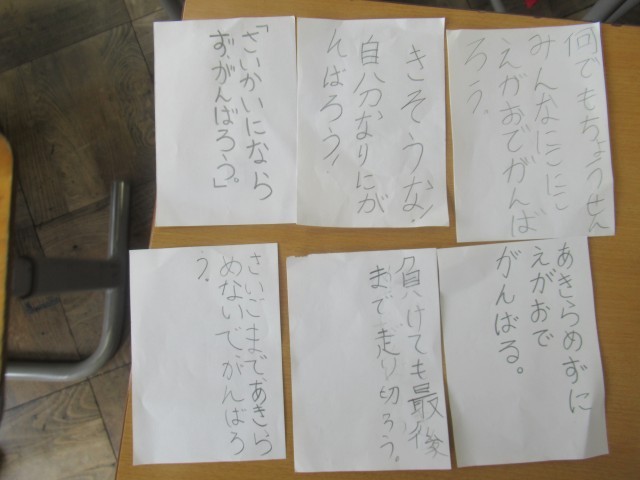 何でもちょうせん
みんなにこにこ
えがおでがんば
ろう。
きそうな!
自分なりにが
んばろう!
「さいかいになら
ず、がんばろう。」
あきらめずに
えがおで
がんばる。
負けても最後
まで走り切ろう。
さいごまであきら
めないでがんばろ
う。